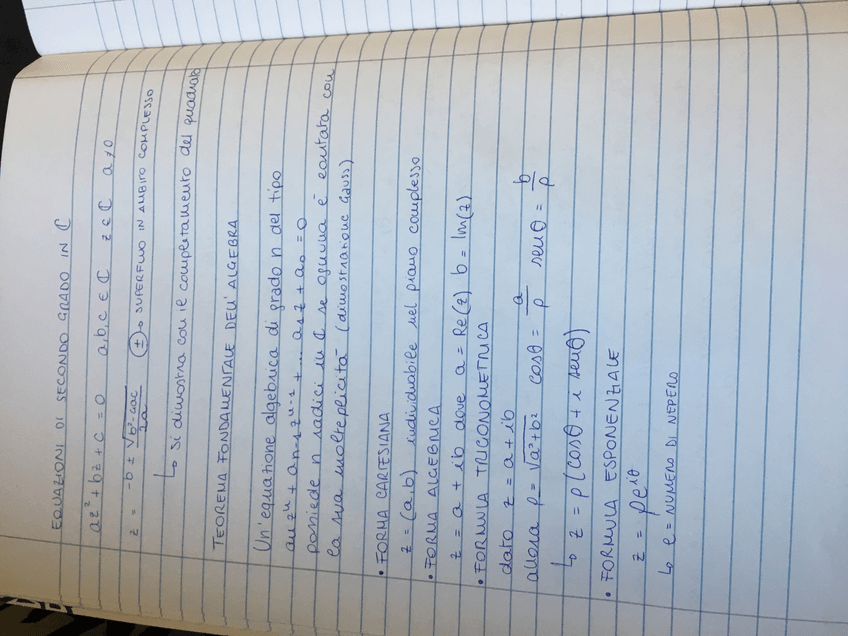 EQUAZIONI DI SECONDO GRADO IN ℂ
az² + bz + c = 0 a,b,c ∈ ℂ z ∈ ℂ a ≠ 0
z = -b ± √b²-4ac / 2a (±) → SUPERFLUO IN AMBITO COMPLESSO
↳ Si dimostra con il completamento del quadrato
TEOREMA FONDAMENTALE DELL'ALGEBRA
Un'equazione algebrica di grado n del tipo
aₙzⁿ + aₙ₋₁zⁿ⁻¹ + ... a₁z + a₀ = 0
possiede n radici in ℂ se ognuna è contata con
la sua molteplicità (dimostrazione Gauss)
• FORMA CARTESIANA
z = (a,b) individuabile nel piano complesso
• FORMA ALGEBRICA
z = a + ib dove a = Re(z) b = Im(z)
• FORMULA TRIGONOMETRICA
dato z = a + ib
allora ρ = √a²+b² cosθ = a/ρ senθ = b/ρ
↳ z = ρ(cosθ + i senθ)
• FORMULA ESPONENZIALE
z = ρe^iθ
↳ e = NUMERO DI NEPERO